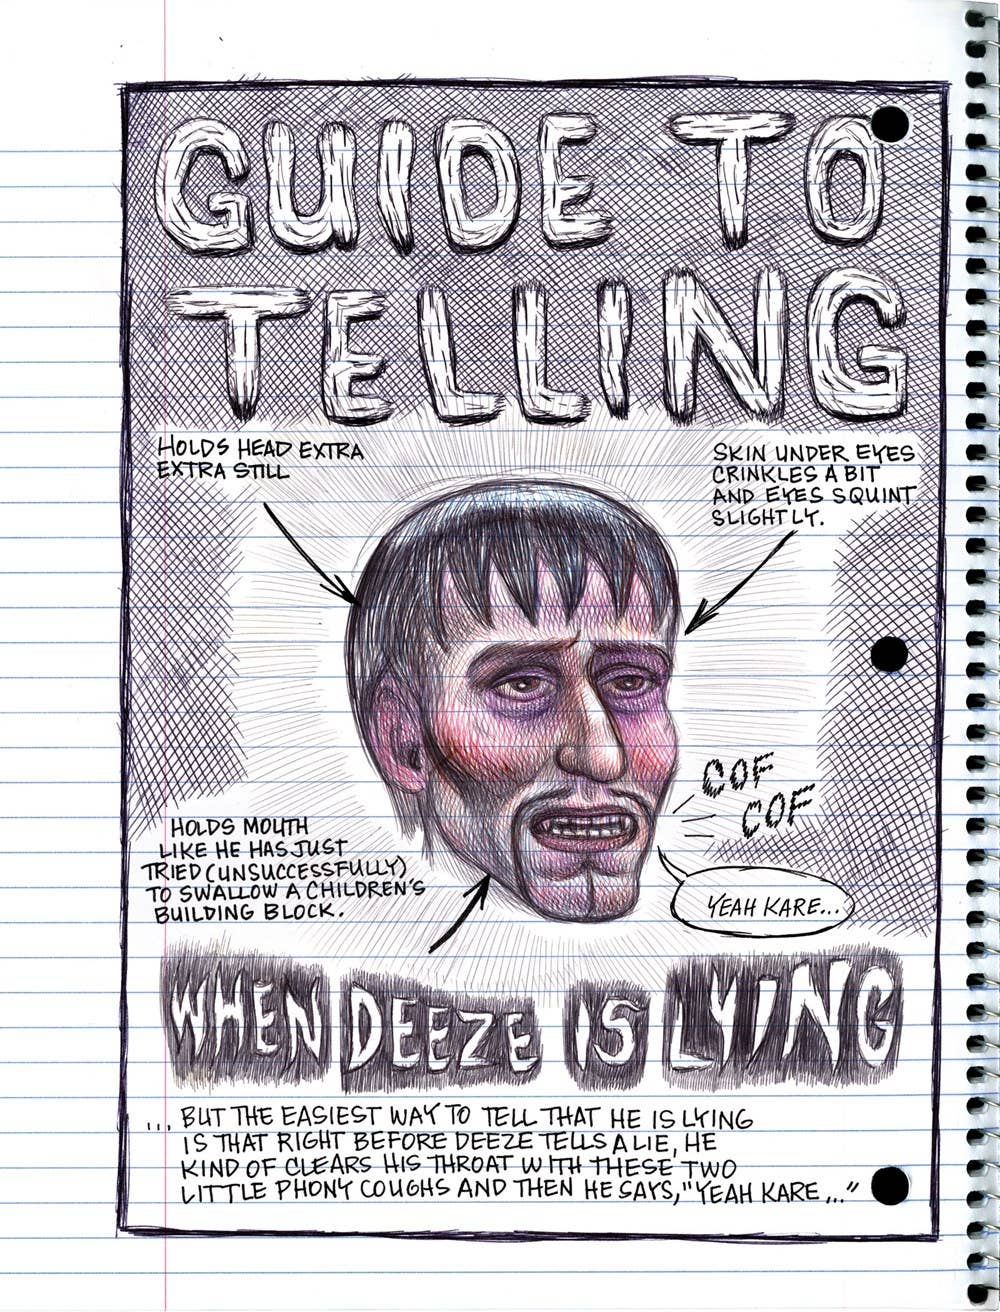 GUIDE TO
TELLING
HOLDS HEAD EXTRA
EXTRA STILL
SKIN UNDER EYES
CRINKLES A BIT
AND EYES SQUINT
SLIGHTLY.
COF
COF
HOLDS MOUTH
LIKE HE HAS JUST
TRIED (UNSUCCESSFULLY)
TO SWALLOW A CHILDREN'S
BUILDING BLOCK.
YEAH KARE...
WHEN DEEZE IS LYING
... BUT THE EASIEST WAY TO TELL THAT HE IS LYING
IS THAT RIGHT BEFORE DEEZE TELLS A LIE, HE
KIND OF CLEARS HIS THROAT WITH THESE TWO
LITTLE PHONY COUGHS AND THEN HE SAYS, "YEAH KARE..."